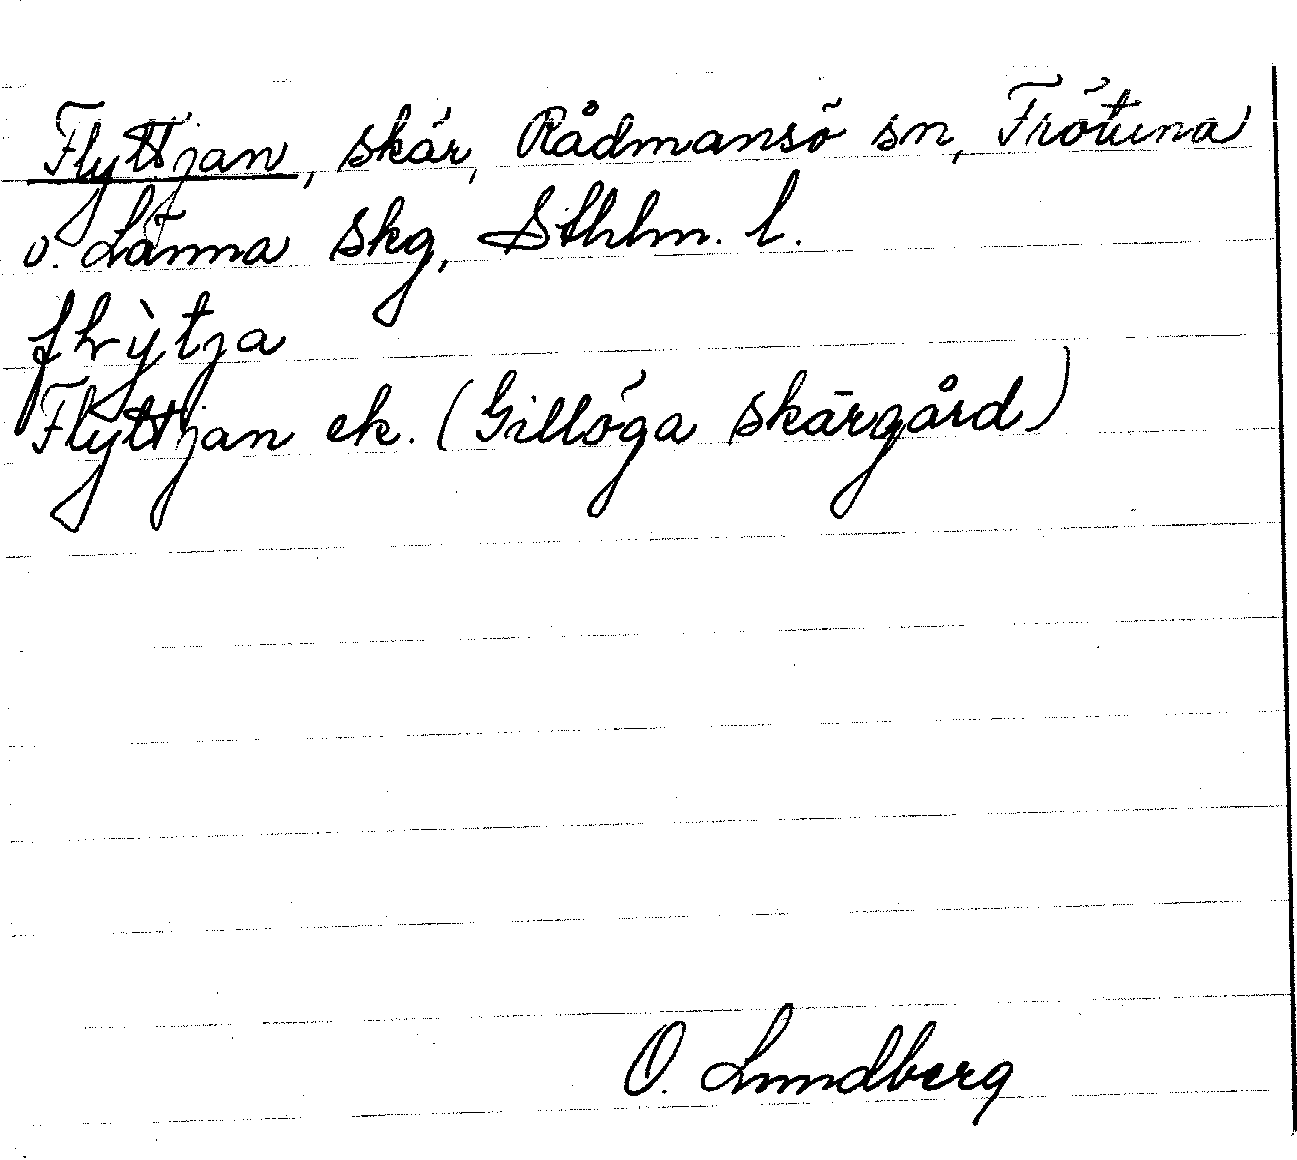 Flyttjan, skär, Rådmansö sn, Frötuna
o. Länna skg, Sthlm. l.
Flyttjan ek. (Gillöga skärgård)
O. Lundberg